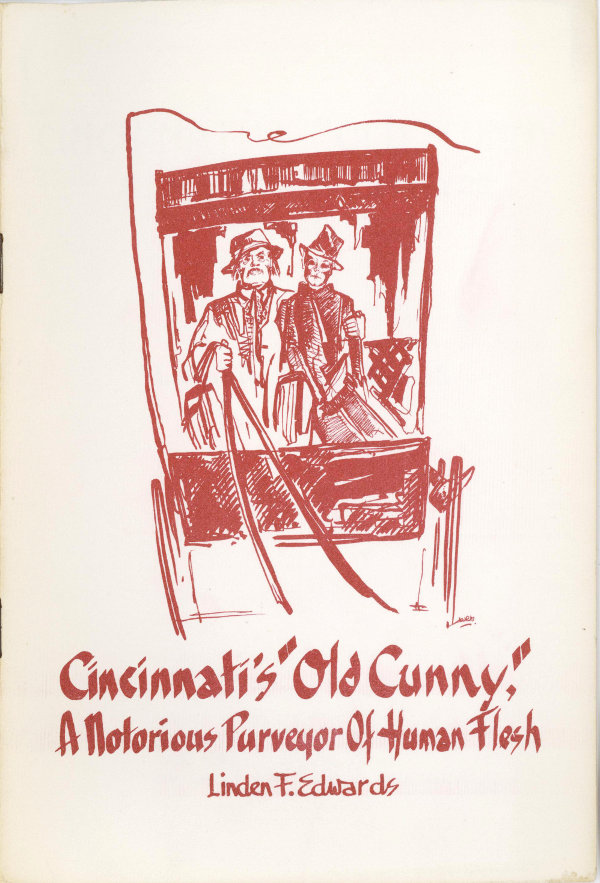 Cincinnati's "Old Cunny,"
A Notorious Purveyor Of Human Flesh
Linden F. Edwards